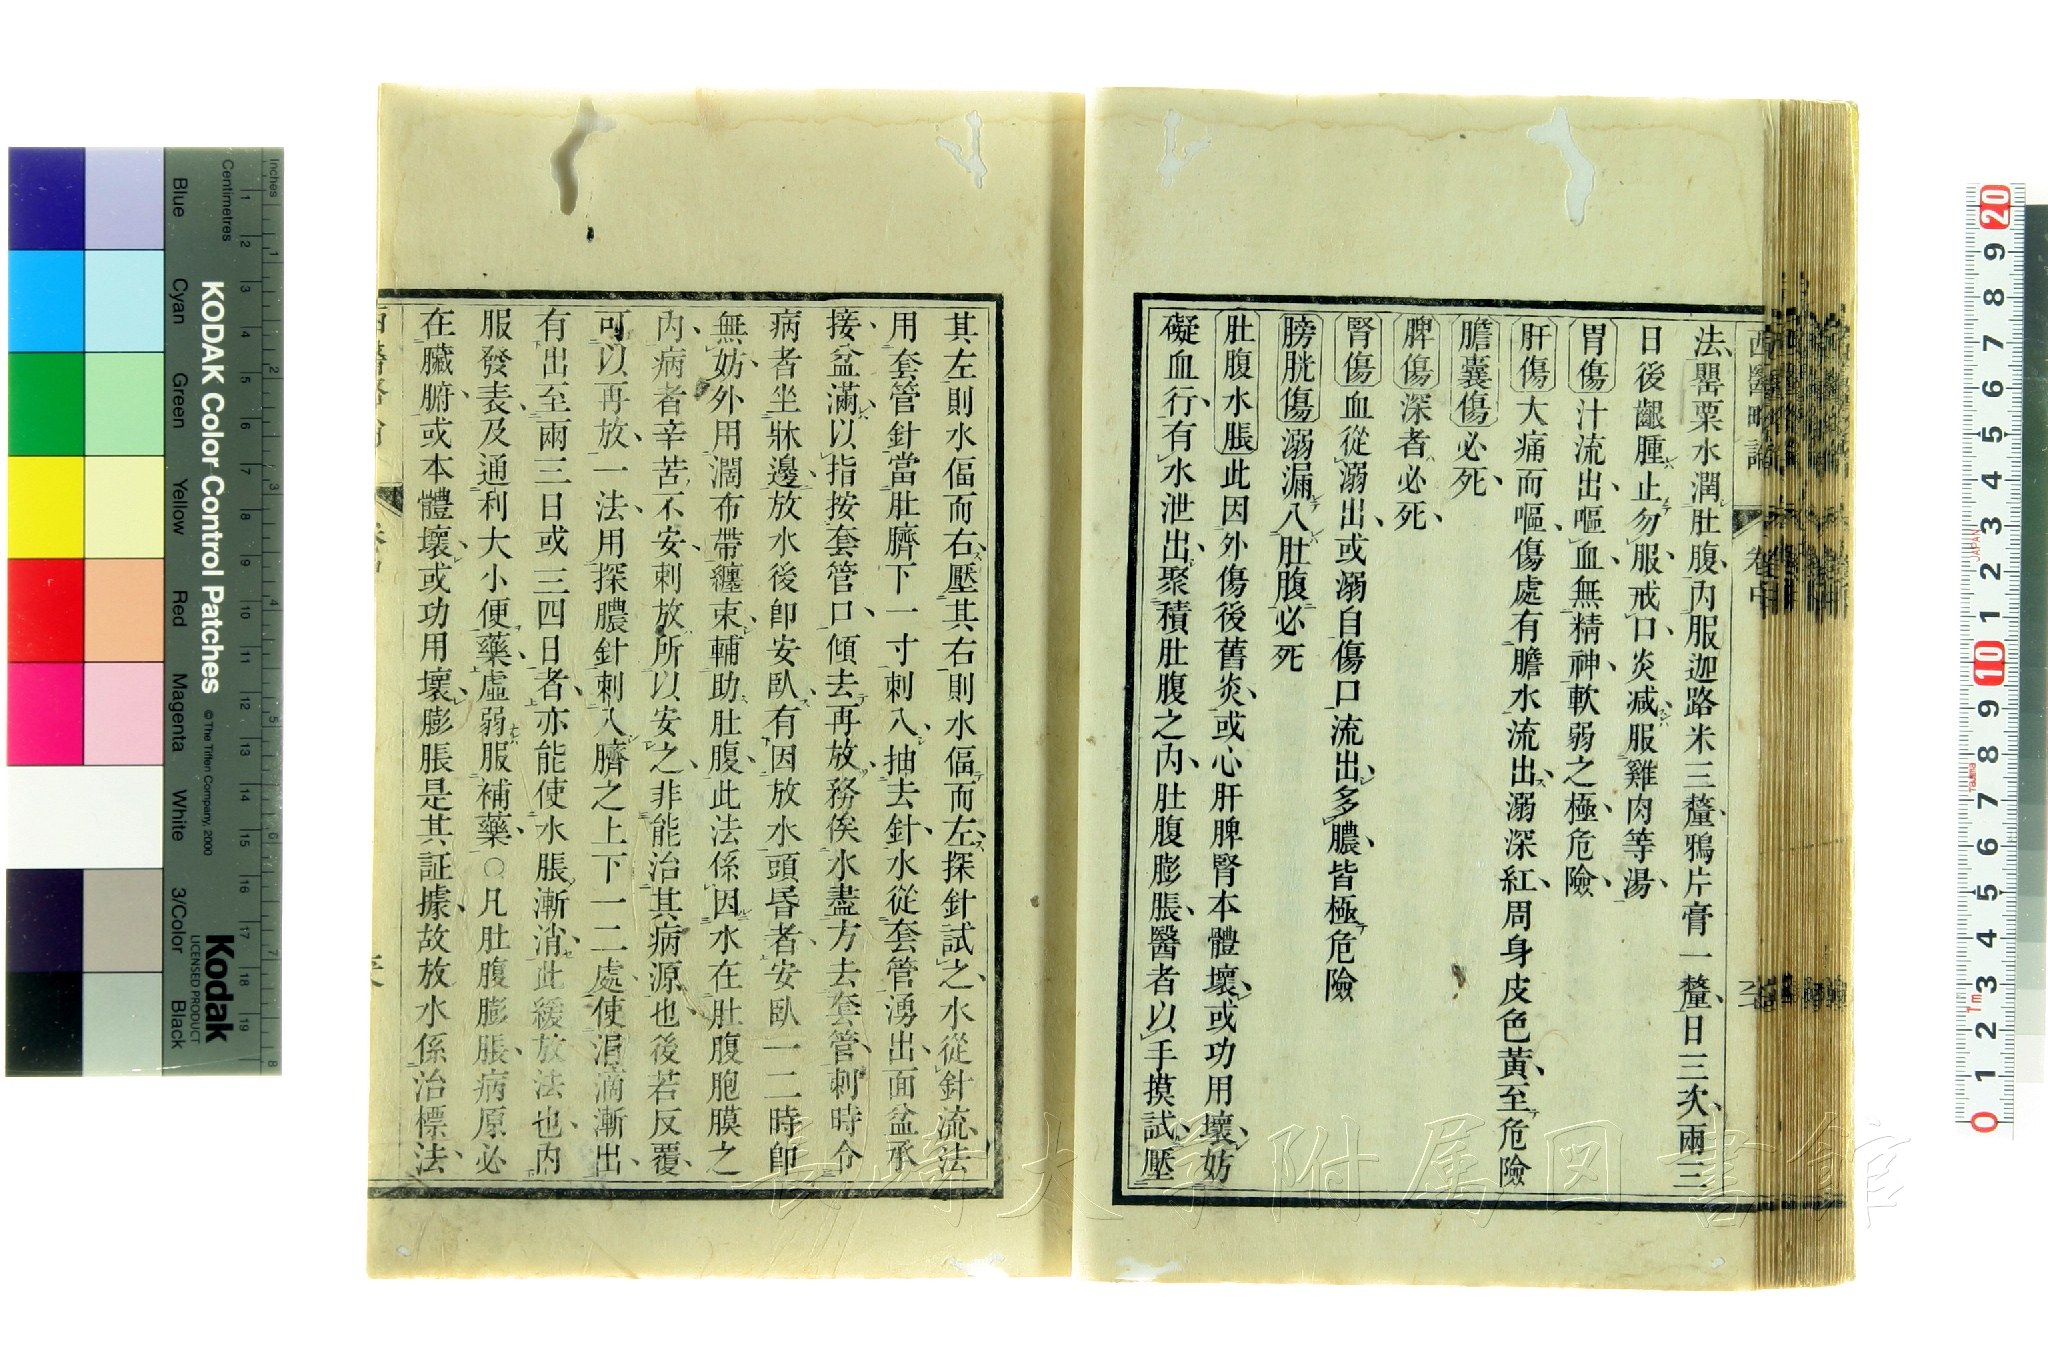 西醫略論 卷中
法、罌粟水潤肚腹、內服迦路米三釐、鴉片膏一釐、日三次、兩三
日後齦腫止勿服、戒口炎減、服雞肉等湯、
胃傷汁流出、嘔血、無精神、軟弱之極、危險、
肝傷大痛而嘔、傷處有膽水流出、溺深紅、周身皮色黃、至危險
膽囊傷必死、
脾傷深者必死、
腎傷血從溺出、或溺自傷口流出、多膿、皆極危險
膀胱傷溺漏入肚腹必死
肚腹水脹此因外傷後舊炎、或心肝脾腎本體壞、或功用壞、妨
礙血行、有水泄出、聚積肚腹之內、肚腹膨脹、醫者以手摸試、壓
其左則水偪而右、壓其右則水偪而左、探針試之、水從針流、法
用套管針、當肚臍下一寸刺入、抽去針、水從套管湧出、面盆承
接、盆滿、以指按套管口、傾去再放、務俟水盡方去套管、刺時令
病者坐牀邊、放水後卽安臥、有因放水頭昏者、安臥一二時卽
無妨、外用濶布帶纏束、輔助肚腹、此法係因水在肚腹胞膜之
內、病者辛苦不安、刺放所以安之、非能治其病源也、後若反覆、
可以再放、一法用探膿針刺入臍之上下一二處、使涓滴漸出、
有出至兩三日或三四日者、亦能使水脹漸消、此緩放法也、內
服發表、及通利大小便藥、虛弱服補藥、○凡肚腹膨脹、病原必
在臟腑、或本體壞、或功用壞、膨脹是其証據、故放水係治標法、
KODAK Color Control Patches
© The Tiffen Company, 2000
Kodak
LICENSED PRODUCT
Inches
Centimetres
Blue
Cyan
Green
Yellow
Red
Magenta
White
3/Color
Black
1 2 3 4 5 6 7 8 9 10 11 12 13 14 15 16 17 18 19
1 2 3 4 5 6 7 8
20 9 8 7 6 5 4 3 2 1 10 9 8 7 6 5 4 3 2 1 0
JAPAN
長崎大学附属図書館